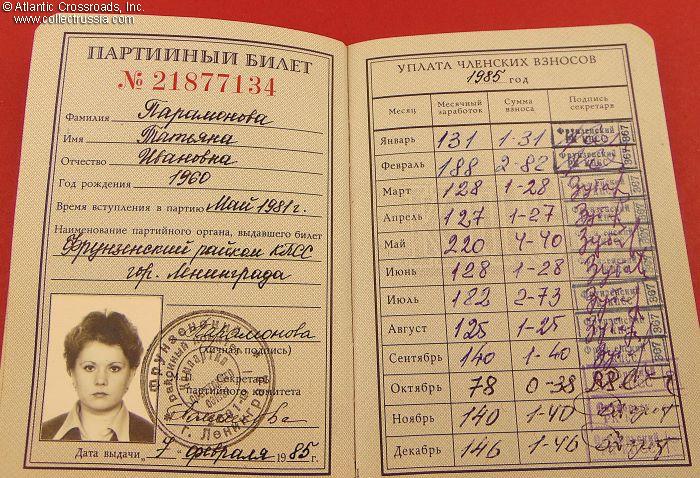 © Atlantic Crossroads, Inc.
www.collectrussia.com
ПАРТИЙНЫЙ БИЛЕТ
№ 21877134
Фамилия Парамонова
Имя Татьяна
Отчество Ивановна
Год рождения 1960
Время вступления в партию Май 1981 г.
Наименование партийного органа, выдавшего билет
Фрунзенский райком КПСС
гор. Ленинграда
Парамонова
(личная подпись)
Секретарь
партийного комитета
Дата выдачи „ 7 “ февраля 1985 г.
УПЛАТА ЧЛЕНСКИХ ВЗНОСОВ
1985 год
Месяц Месячный заработок Сумма взноса Подпись секретаря
Январь 131 1-31
Февраль 188 2-82
Март 128 1-28
Апрель 127 1-27
Май 220 4-40
Июнь 128 1-28
Июль 182 2-73
Август 125 1-25
Сентябрь 140 1-40
Октябрь 78 0-38
Ноябрь 140 1-40
Декабрь 146 1-46